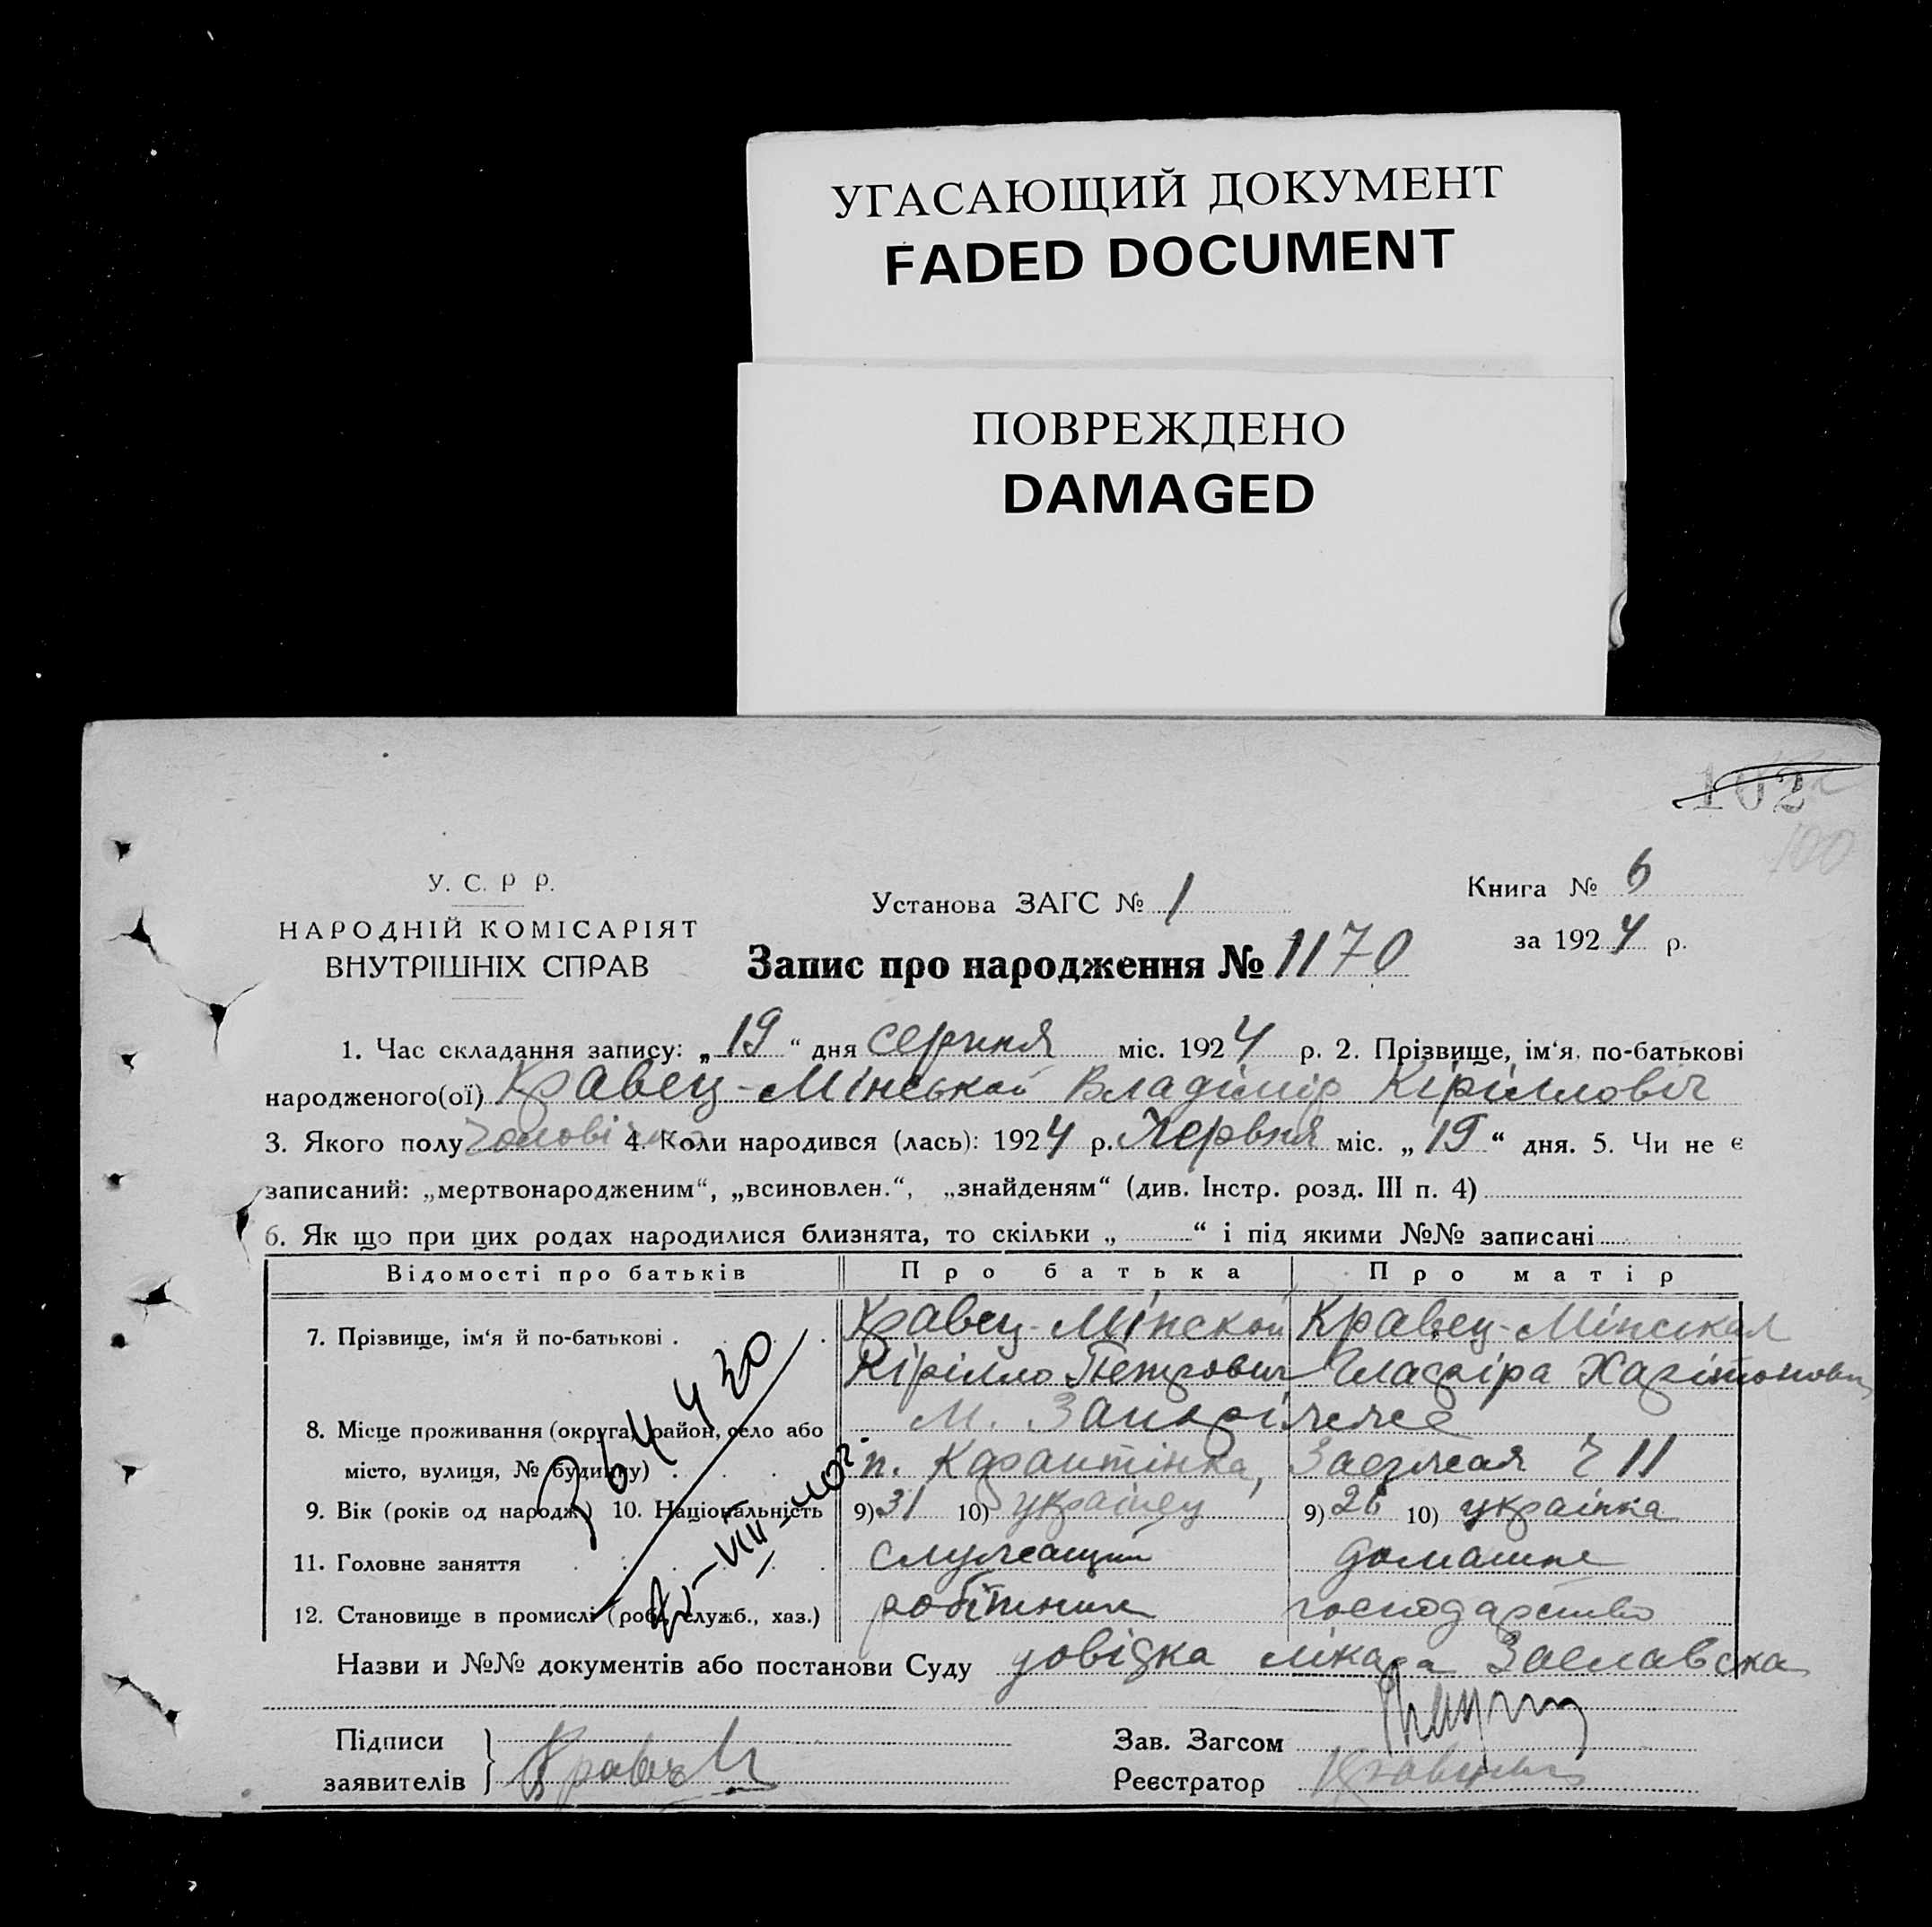 УГАСАЮЩИЙ ДОКУМЕНТ
FADED DOCUMENT
ПОВРЕЖДЕНО
DAMAGED
102
100
У. С. Р Р.
НАРОДНІЙ КОМІСАРІЯТ
ВНУТРІШНІХ СПРАВ
Установа ЗАГС № 1
Книга № 6
за 1924 р.
Запис про народження № 1170
1. Час складання запису: „19“ дня серпня міс. 1924 р. 2. Прізвище, ім‘я, по-батькові
народженого(ої) Кравец-Мінській Владімір Кіріллович
3. Якого полу чоловічого 4. Коли народився (лась): 1924 р. Червня міс. „19“ дня. 5. Чи не є
записаний: „мертвонародженим“, „всиновлен.“, „знайденям“ (див. Інстр. розд. III п. 4)
6. Як що при цих родах народилися близнята, то скільки „ “ і під якими №№ записані
Відомості про батьків Про батька Про матір
7. Прізвище, ім‘я й по-батькові . Кравец-Мінской Кравец-Мінская
Кірілло Петрович Глафіра Харітоновн
8. Місце проживання (округа, район, село або м. Запоріжже
місто, вулиця, № будинку) . п. Карантінка, 11
9. Вік (років од народж.) 10. Національність 9) 31 10) українец 9) 26 10) українка
11. Головне заняття служащий домашне
12. Становище в промислі (роб., служб., хаз.) робітник господарство
364420
Назви и №№ документів або постанови Суду довідка лікара Заславска
Підписи
заявителів Кравец М
Зав. Загсом
Реєстратор